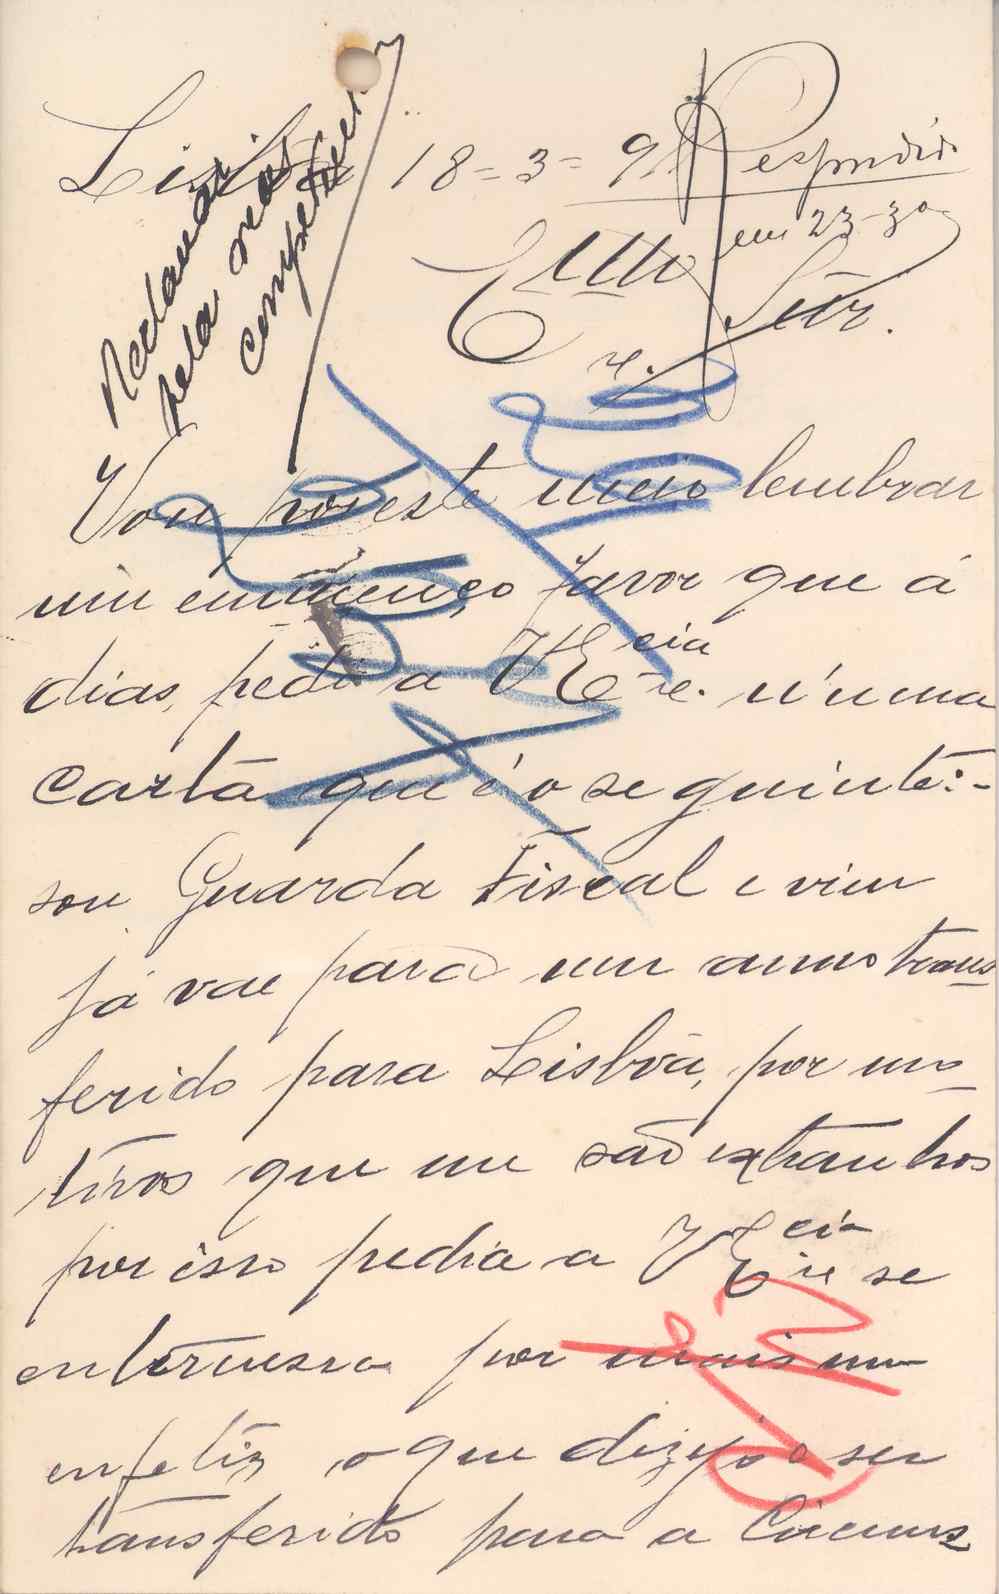 Lisboa 18-3-9
Respondido
em 23-3º
Exmo Snr.
Reclamar
pelas vias
competentes
Vou por este meio lembrar
um emmenço favor que á
dias, pedi a V Ecia re. n'uma
carta que é o seguinte:-
sou Guarda Fiscal e vim
já vae para um anno trans
ferido para Lisbôa, por mo-
tivos que me são extranhos
por isso pedia a V Ecia re se
enteressa por mais um
enfeliz, o que dizejo o ser
transferido para a Circuns